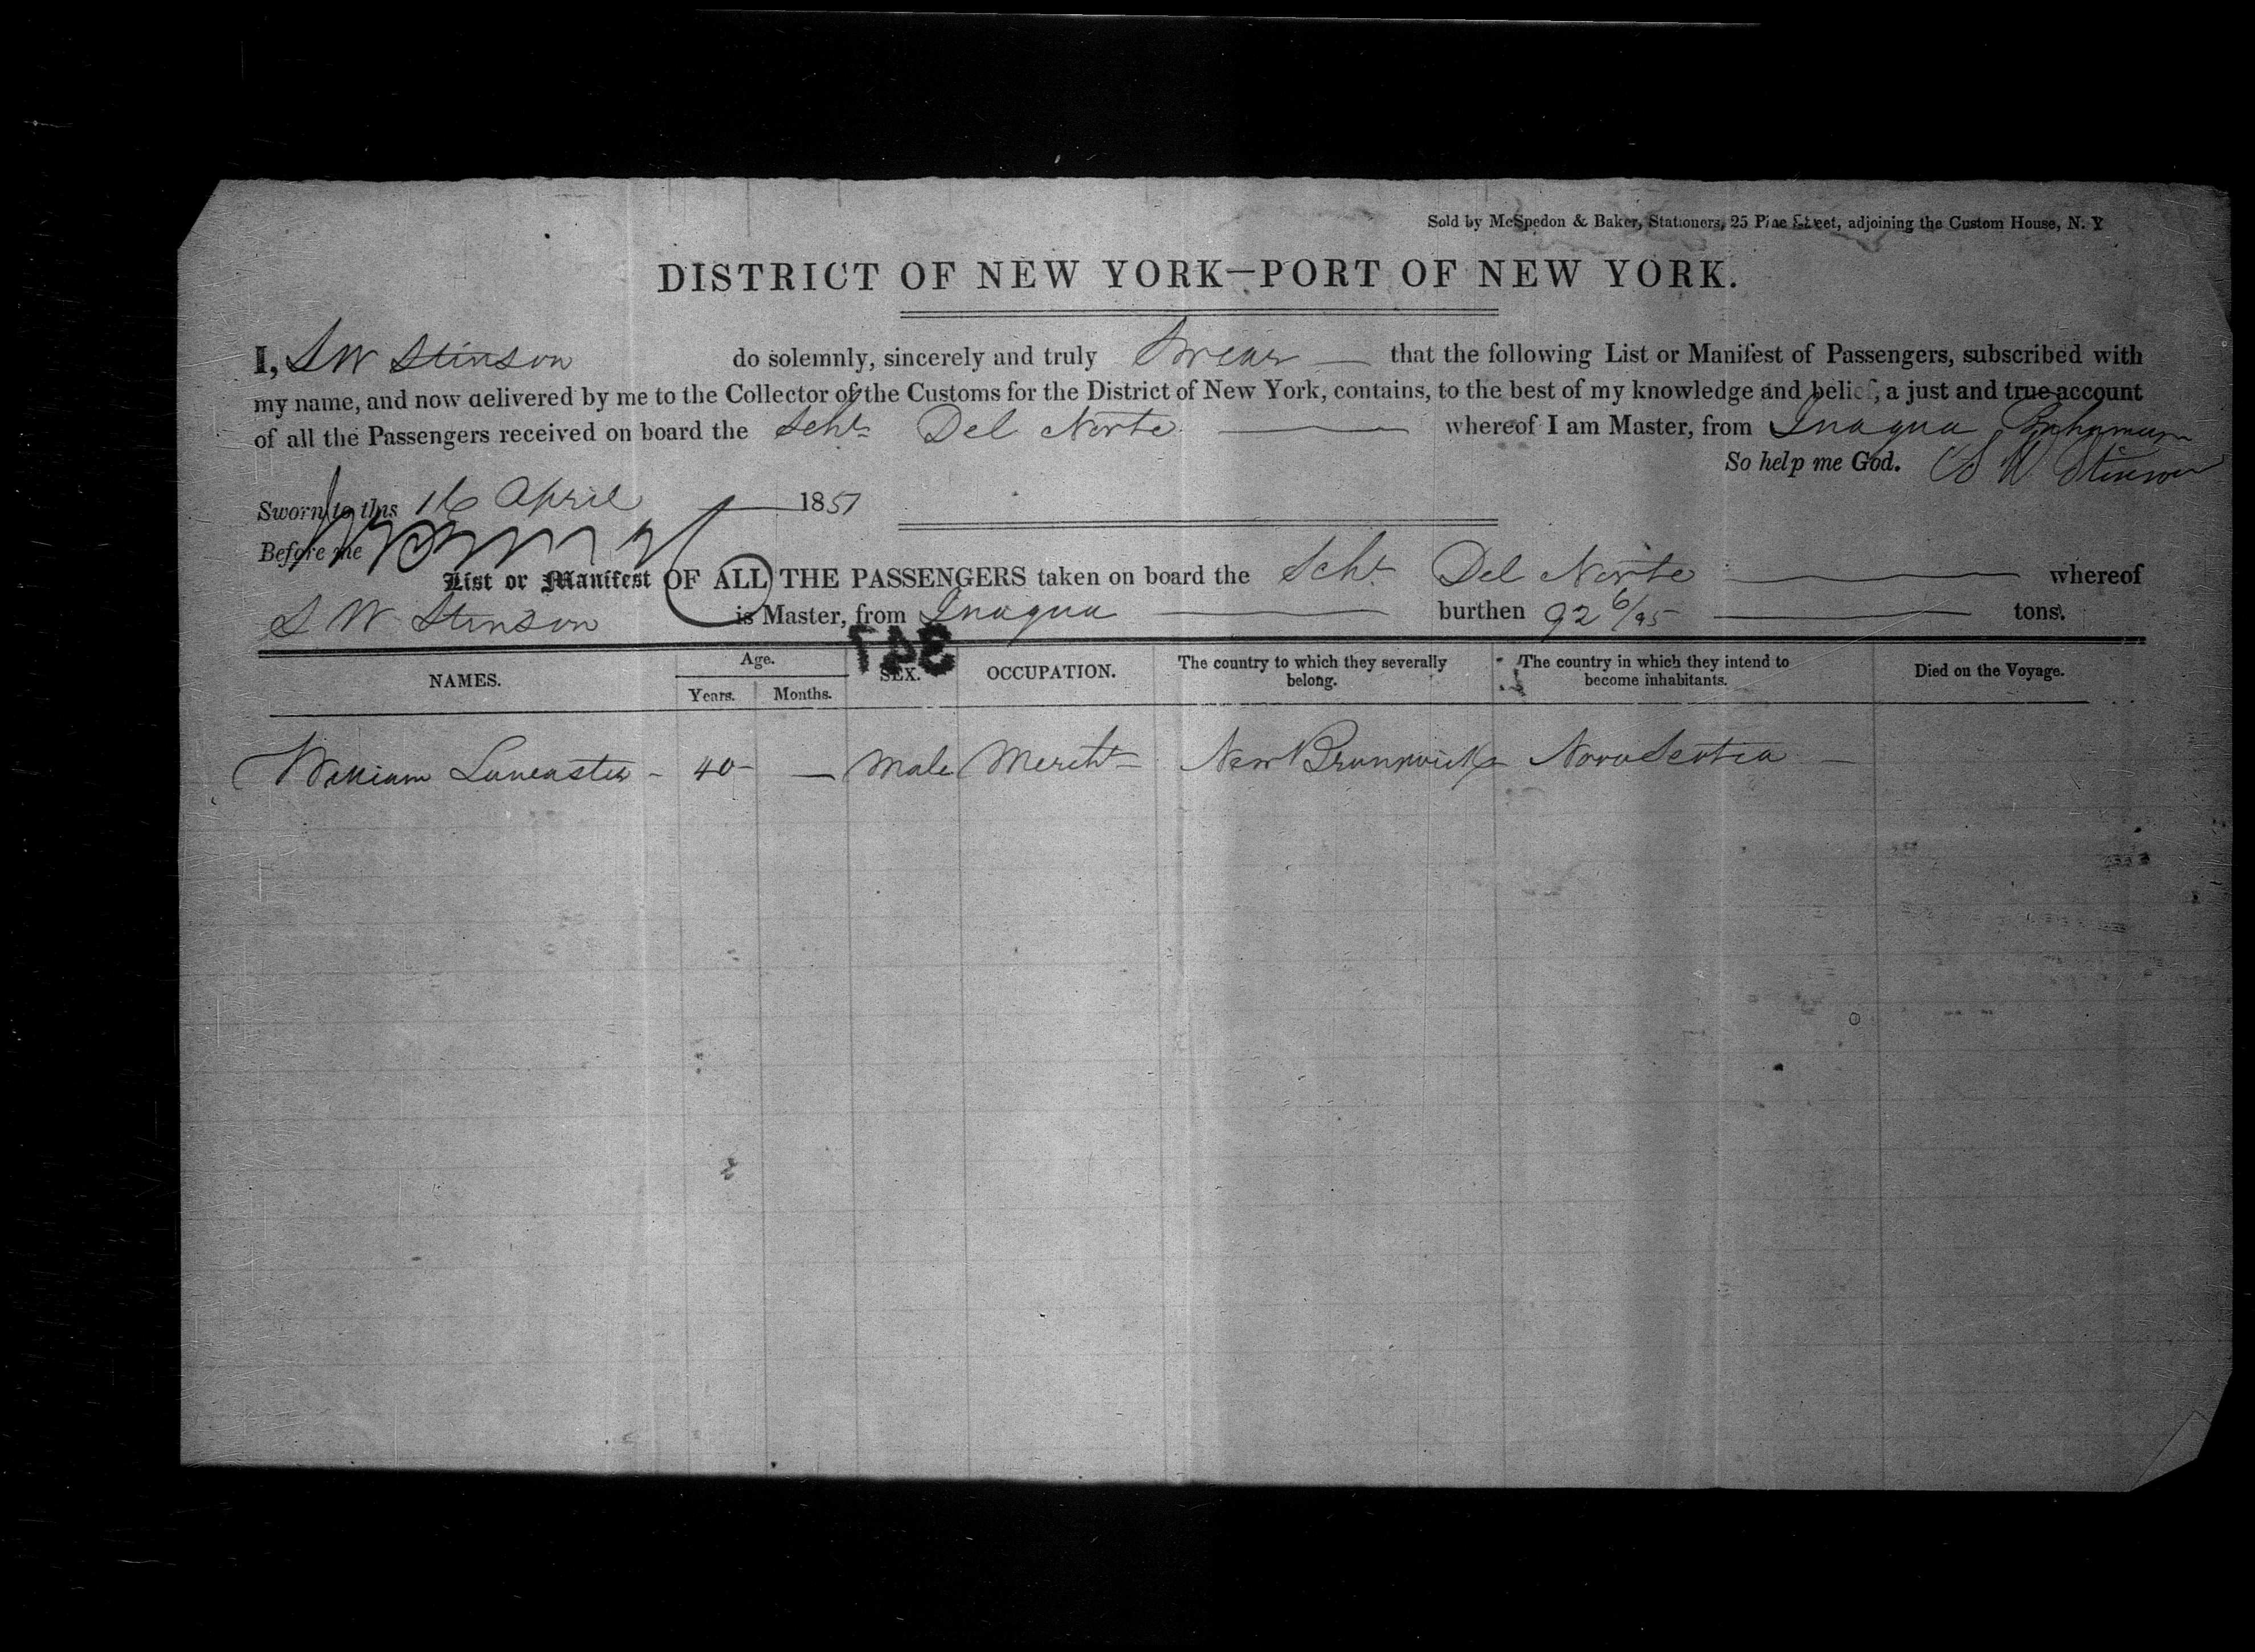 Sold by McSpedon & Baker, Stationers, 25 Pine Street, adjoining the Custom House, N. Y
DISTRICT OF NEW YORK—PORT OF NEW YORK.
I, S W Stinson do solemnly, sincerely and truly Swear — that the following List or Manifest of Passengers, subscribed with
my name, and now delivered by me to the Collector of the Customs for the District of New York, contains, to the best of my knowledge and belief, a just and true account
of all the Passengers received on board the Schr Del Norte — whereof I am Master, from Inagua Bahamas
So help me God. S W Stinson
Sworn to this 16 April 1851
Before me
List or Manifest OF ALL THE PASSENGERS taken on board the Schr Del Norte — whereof
S W Stinson is Master, from Inagua — burthen 92 6/95 — tons.
547
NAMES. Age. Years. Months. SEX. OCCUPATION. The country to which they severally belong. The country in which they intend to become inhabitants. Died on the Voyage.
William Lancaster - 40 - — Male Mercht - New Brunswick Nova Scotia —